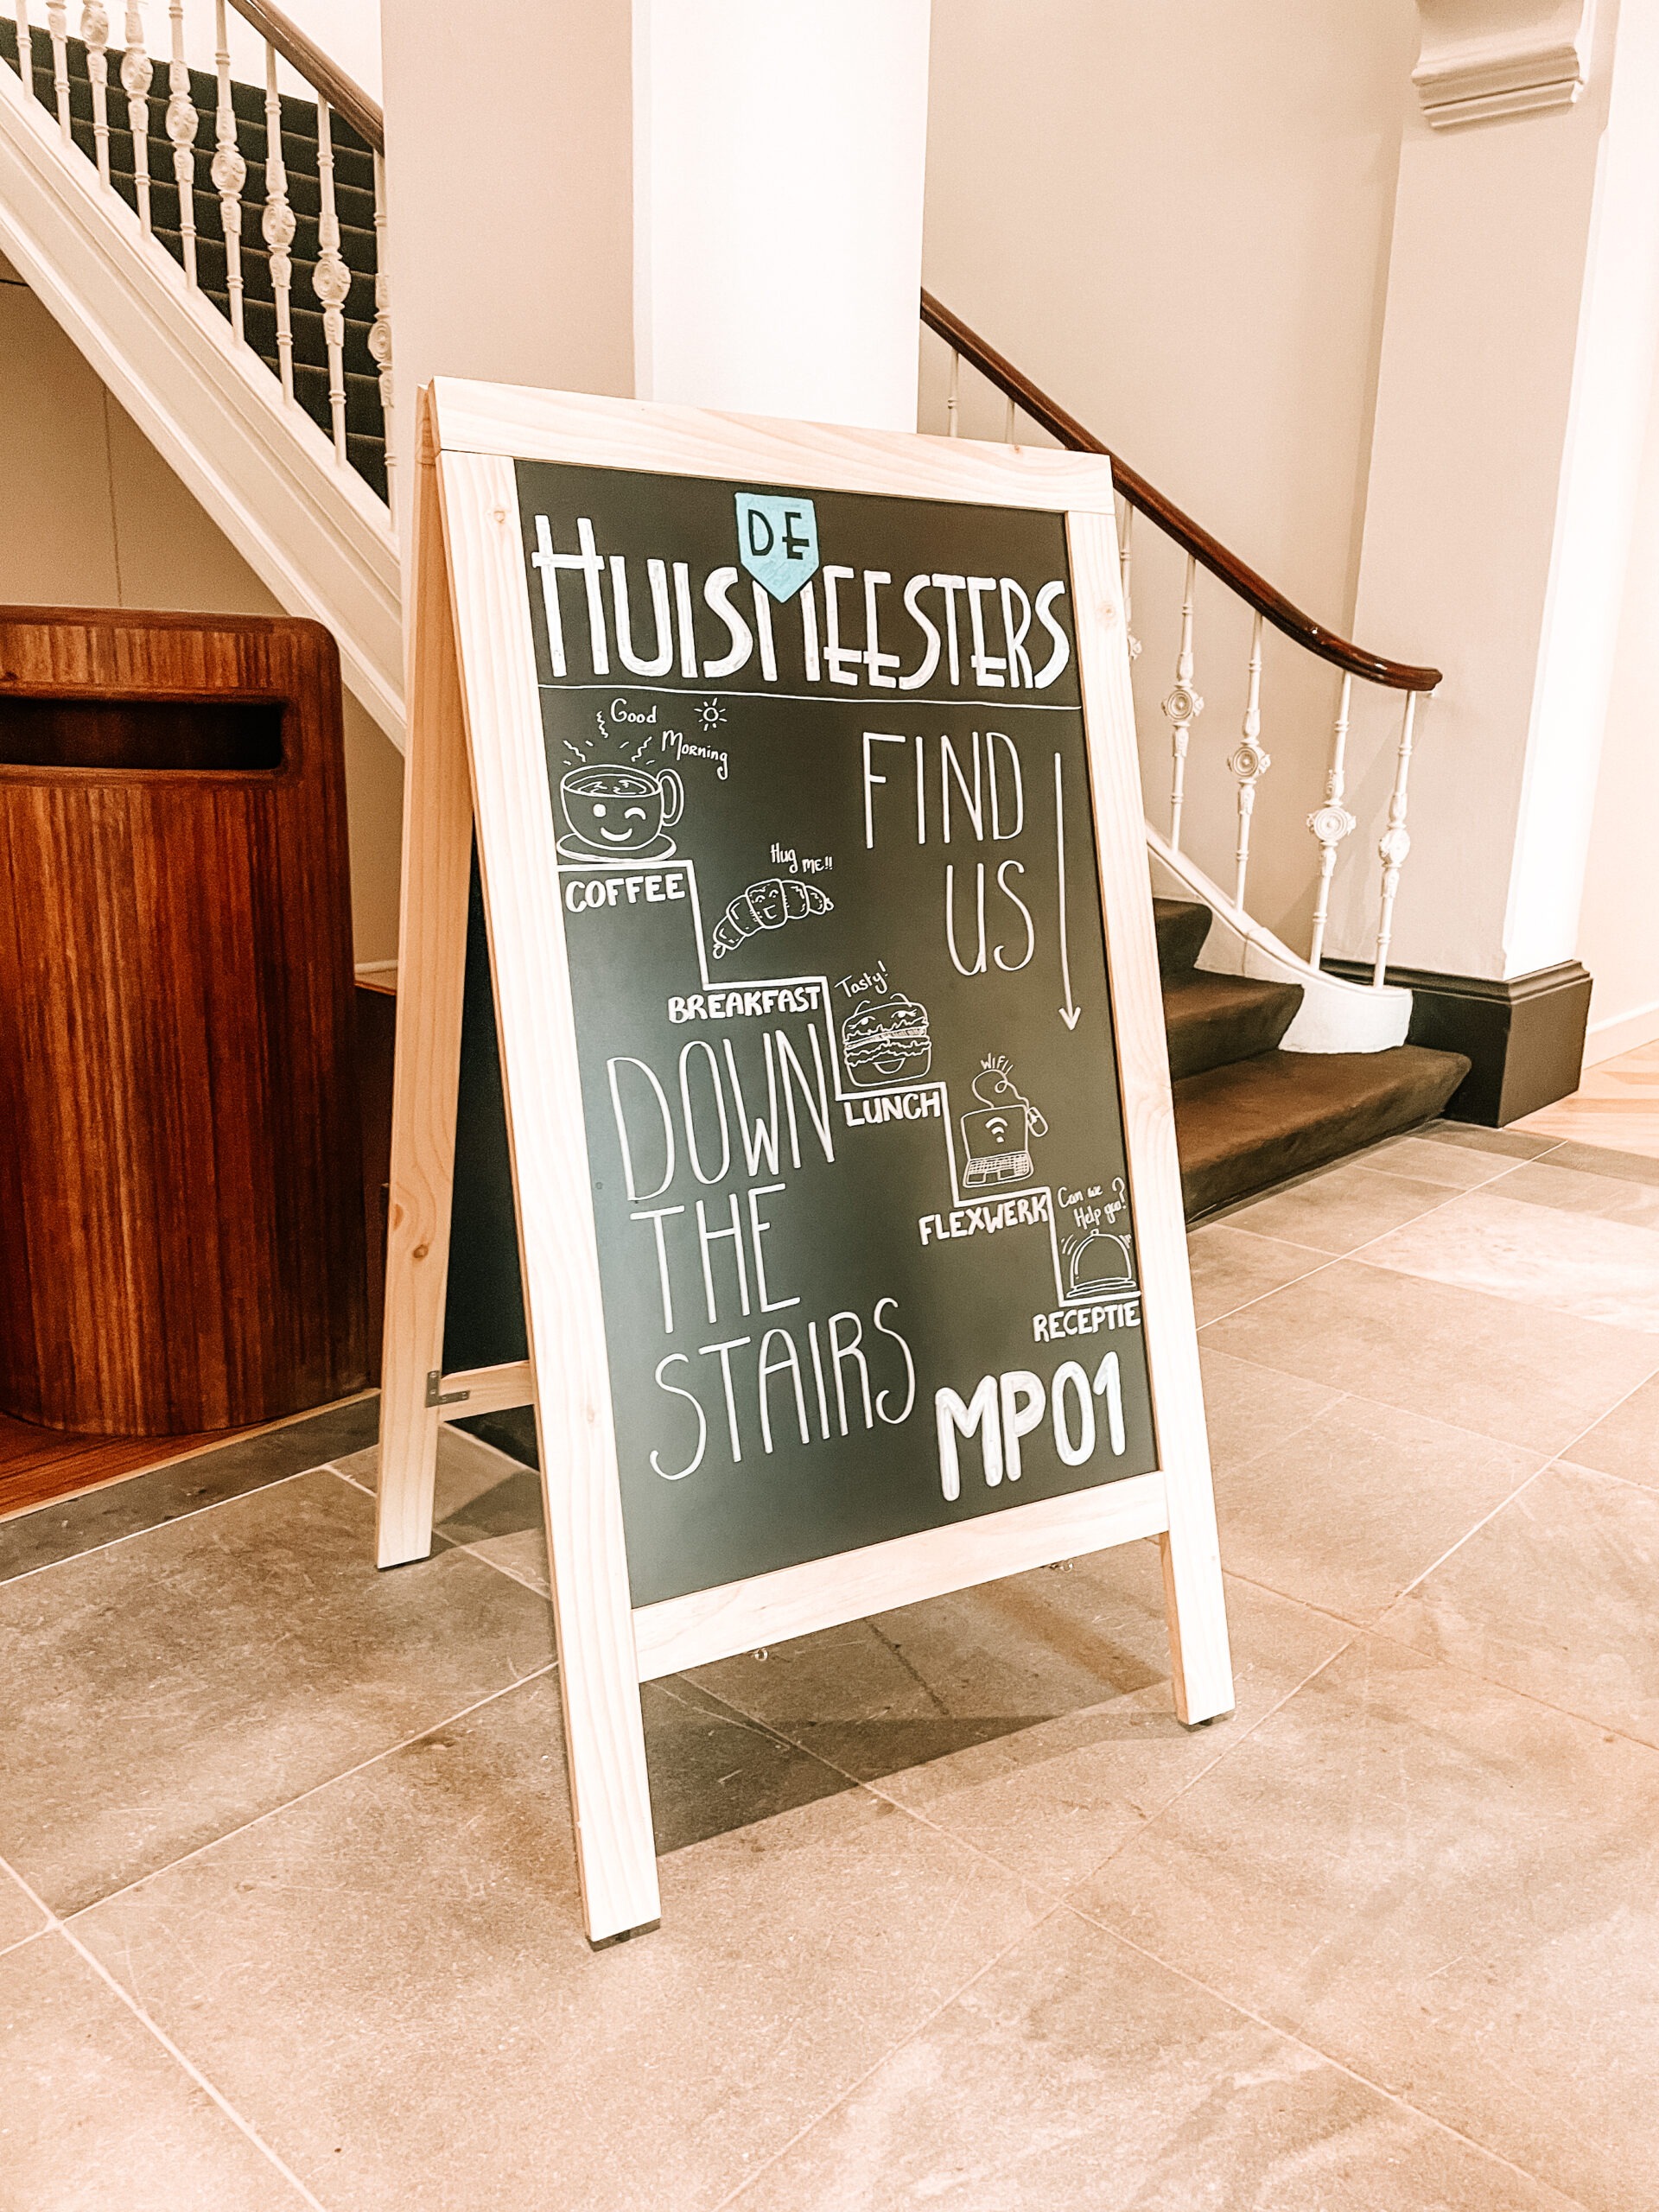 DE
HUISMEESTERS
Good
Morning
COFFEE
FIND
US
Hug
ME!!
BREAKFAST
Tasty!
LUNCH
WIFI
FLEXWERK
Can we
Help you?
RECEPTIE
DOWN
THE
STAIRS
MP01